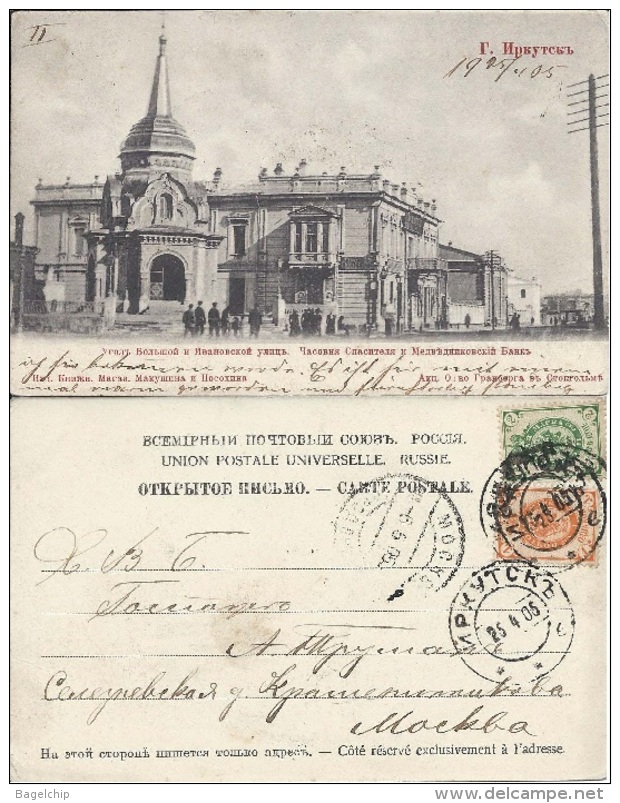 II
Г. Иркутскъ
19 25/4 05
Уголъ Большой и Ивановской улицъ. Часовня Спасителя и Медвѣдниковскій Банкъ
ich sie bekommen werde. Es ist für mich
Изд. Книжн. Магаз. Макушина и Посохина
Акц. О-во Гранберга въ Стокгольмѣ
mal warm geworden und
ВСЕМІРНЫЙ ПОЧТОВЫЙ СОЮЗЪ. РОССІЯ.
UNION POSTALE UNIVERSELLE. RUSSIE.
ОТКРЫТОЕ ПИСЬМО. — CARTE POSTALE.
МОСКВА
ИРКУТСКЪ
25.4.05
Е. В. Б.
Господину
А. Труманъ
Селезневская д. Крашенинникова
Москва
На этой сторонѣ пишется только адресъ. — Côté réservé exclusivement à l'adresse.
Bagelchip
www.delcampe.net